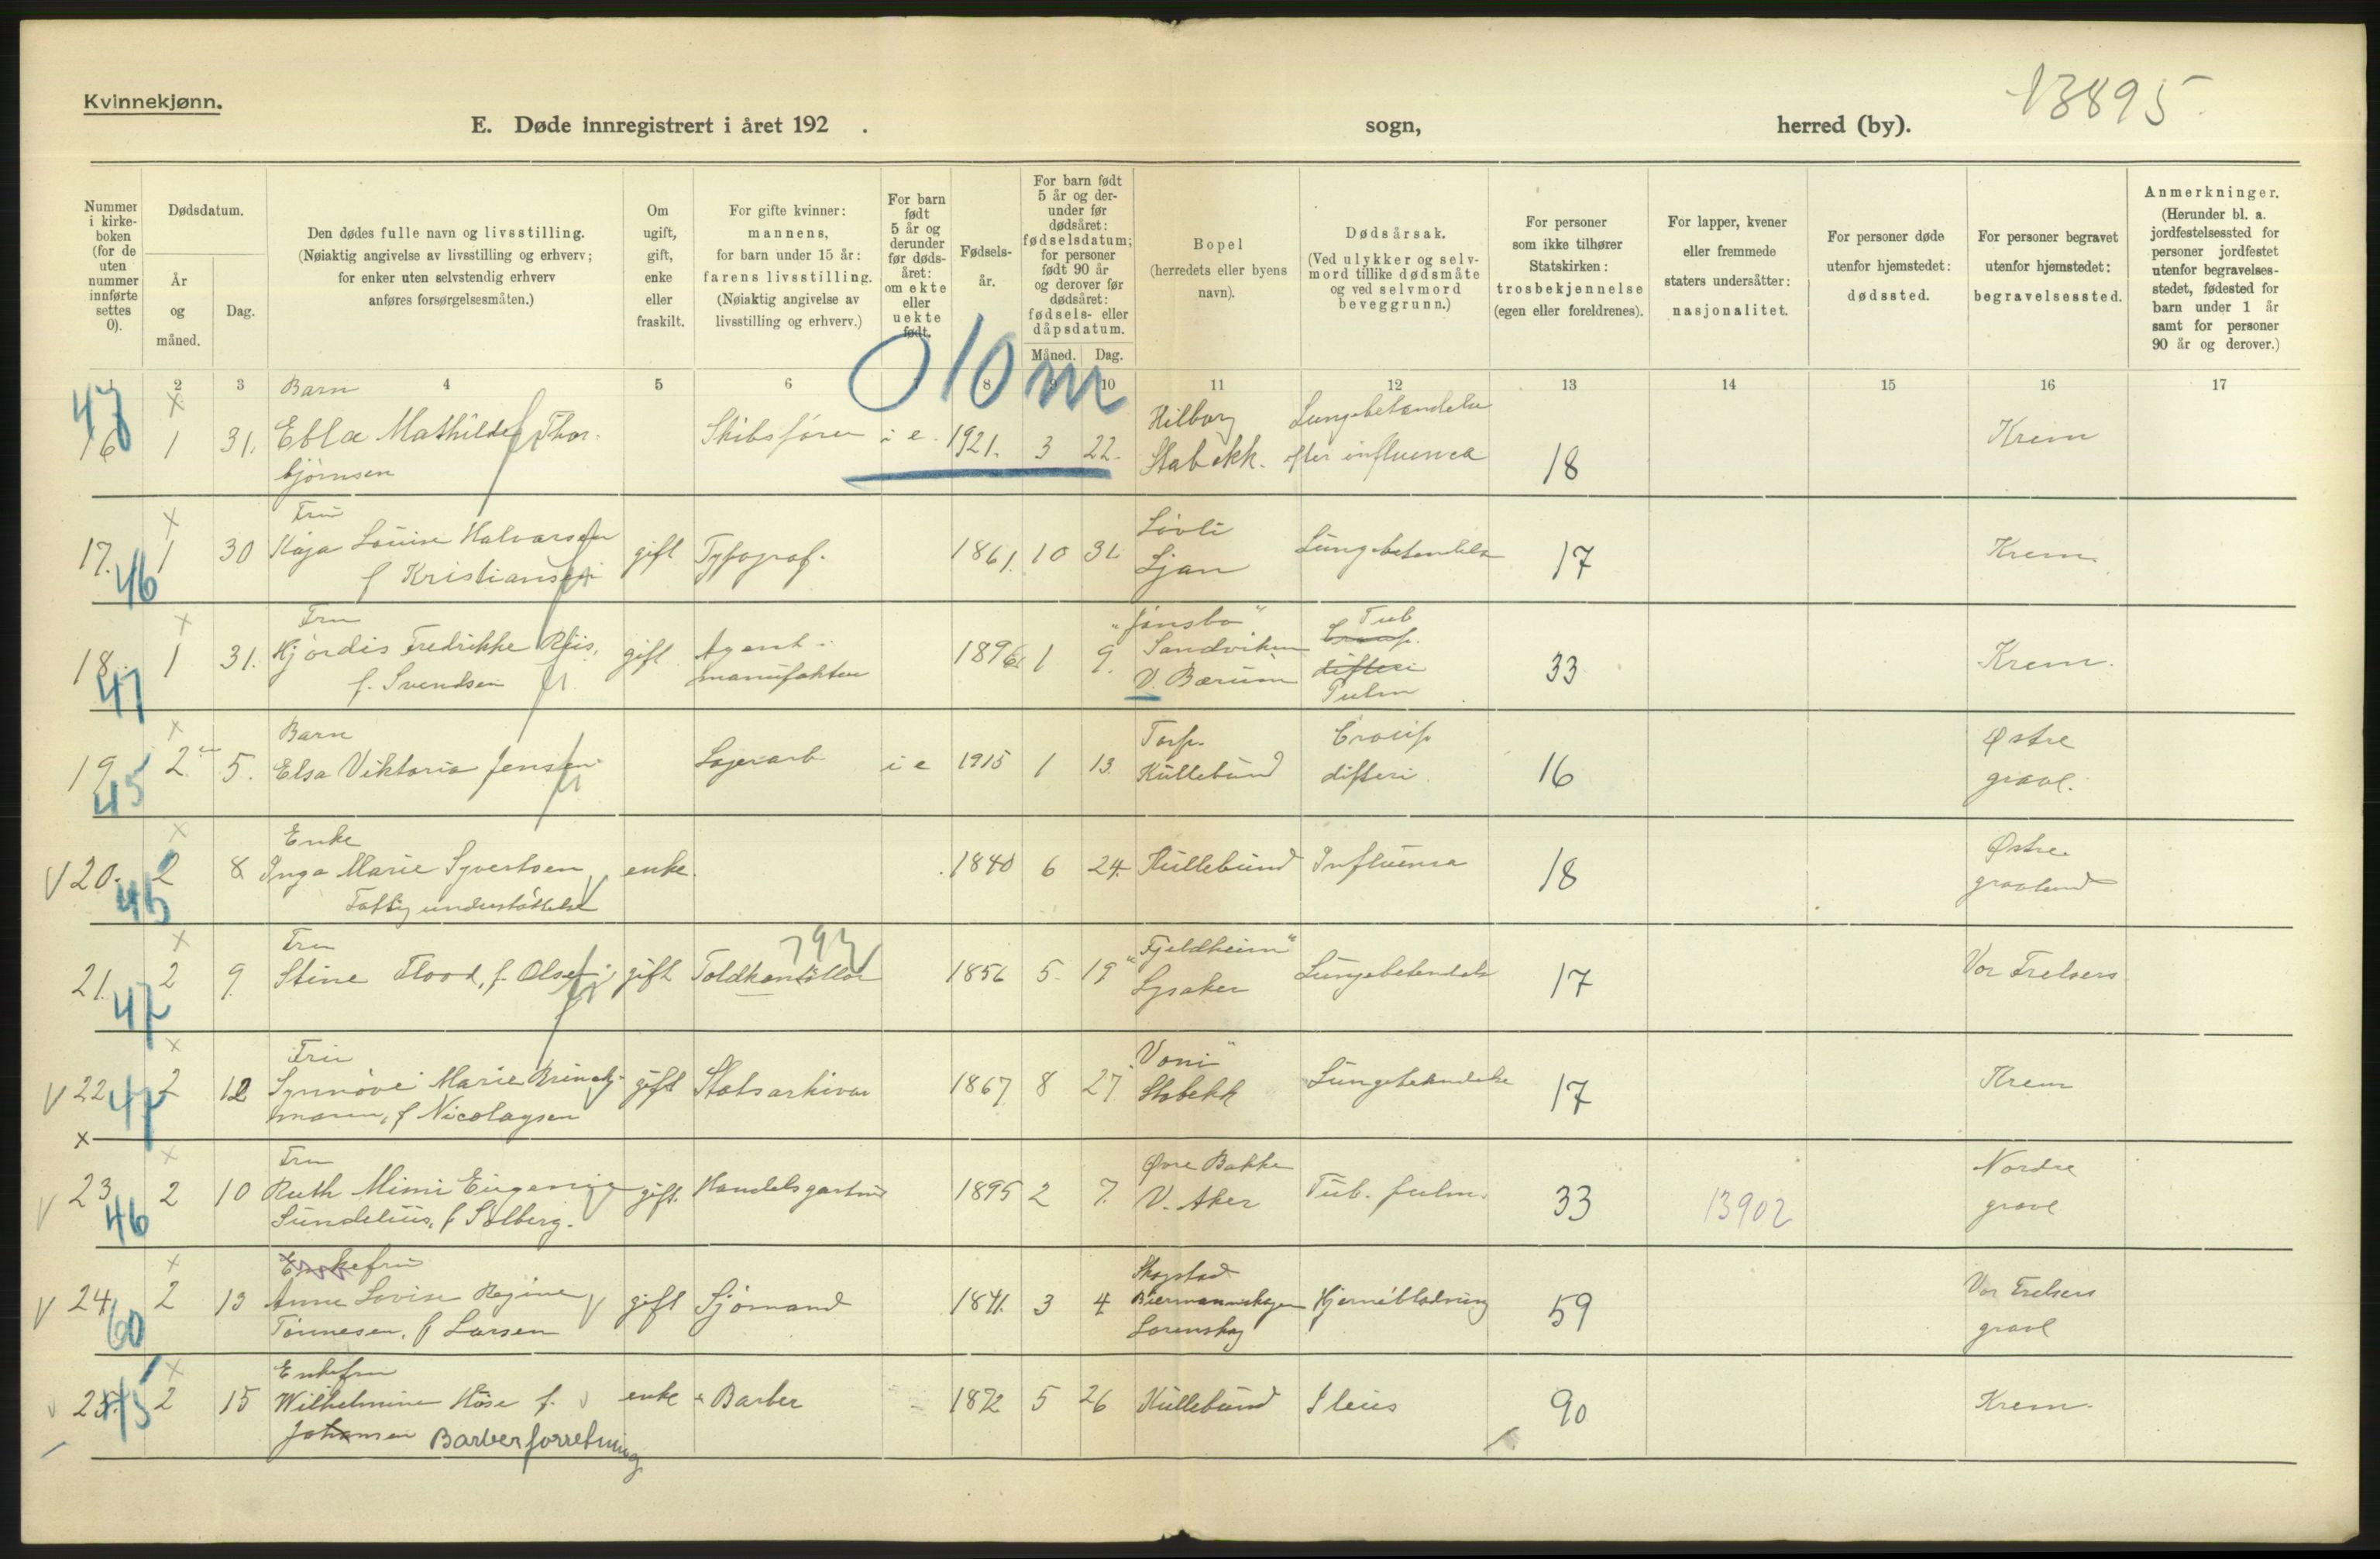 Kvinnekjønn.
13895
E. Døde innregistrert i året 192 . sogn, herred (by).
Nummer i kirke-boken (for de uten nummer innførte settes 0).
Dødsdatum.
År og måned.
Dag.
Den dødes fulle navn og livsstilling.
(Nøiaktig angivelse av livsstilling og erhverv;
for enker uten selvstendig erhverv
anføres forsørgelsesmåten.)
Om ugift, gift, enke eller fraskilt.
For gifte kvinner:
mannens,
for barn under 15 år:
farens livsstilling.
(Nøiaktig angivelse av
livsstilling og erhverv.)
For barn født 5 år og derunder før døds-året: om ekte eller uekte født.
Fødsels-år.
For barn født 5 år og der-under før dødsåret: fødselsdatum; for personer født 90 år og derover før dødsåret: fødsels- eller dåpsdatum.
Måned. Dag.
Bopel
(herredets eller byens
navn).
Dødsårsak.
(Ved ulykker og selv-
mord tillike dødsmåte
og ved selvmord
beveggrunn.)
For personer
som ikke tilhører
Statskirken:
trosbekjennelse
(egen eller foreldrenes).
For lapper, kvener
eller fremmede
staters undersåtter:
nasjonalitet.
For personer døde
utenfor hjemstedet:
dødssted.
For personer begravet
utenfor hjemstedet:
begravelsessted.
Anmerkninger.
(Herunder bl. a.
jordfestelsessted for
personer jordfestet
utenfor begravelses-
stedet, fødested for
barn under 1 år
samt for personer
90 år og derover.)
1 2 3 4 5 6 8 9 10 11 12 13 14 15 16 17
010 m
47
Barn
16 1 31. Ebla Mathilde Thor- Skibsfører i e. 1921. 3 22. Hilborg Lungebetendelse 18 Krem
bjørnsen Stabekk. efter influensa
Fru
17. 1 30 Kaja Louise Halvorsen gift Typograf. 1861. 10 31. Løvli Lungebetendelse 17 Krem.
46 f Kristiansen Ljan
Fru
18. 1 31. Hjørdis Fredrikke Riis, gift Agent i 1896. 1 9. "Jönsbo" Tub 33 Krem.
47 f. Svendsen manufaktur Sandviken Croup.
V. Bærum difteri
Pulm
Barn
19 2 5. Elsa Viktoria Jensen Lagerarb. i e 1915 1 13. Torp. Croup 16 Østre
45 Kullebund difteri gravl.
Enke
V 20. 2 8 Inga Marie Syvertsen enke. 1840 6 24. Kullebund Influensa 18 Østre
45 Fattigunderstøttelse gravlund
Fru 793
21. 2 9. Stine Flood, f. Olsen gift Toldkontollør 1856 5. 19 "Fjeldheim" Lungebetendelse 17 Vor Frelsers
47 Lysaker
Fru
V 22 2 12 Synnøve Marie Brinch- gift Statsarkivar 1867 8 27 "Voni" Lungebetendelse 17 Krem
47 mann, f Nicolaysen Stabekk
x
Fru
V 23 2 10 Ruth Mimi Eugenie gift. Handelsgartner 1895 2 7. Øvre Bakke Tub. pulm. 33 13902 Nordre
46 Sundelius, f Solberg. V. Aker gravl
Enkefru
V 24 2 13 Anne Lovise Regine gift Sjømand 1841. 3 4 Skogstad Hjerneblødning 59 Vor Frelsers
60 Tønnesen, f Larsen Biermannskogen gravl
Lørenskog
Enkefru
25. 2 15 Wilhelmine Höse f. enke Barber 1872 5 26 Kullebund Ileus 90 Krem.
45 Johansen Barberforretning